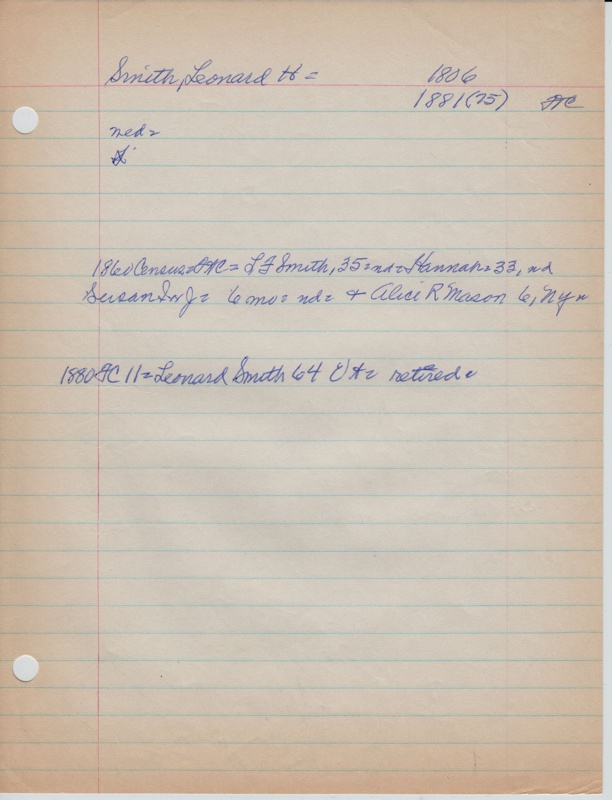 Smith, Leonard H = 1806
1881 (75) FC
med=
1860 Census = FC = L F Smith, 35 = nd = Hannah = 33, nd
Susan 6 mo = nd = + Alice R Mason 6, Ny =
1880 FC 11 = Leonard Smith 64 Vt = retired =